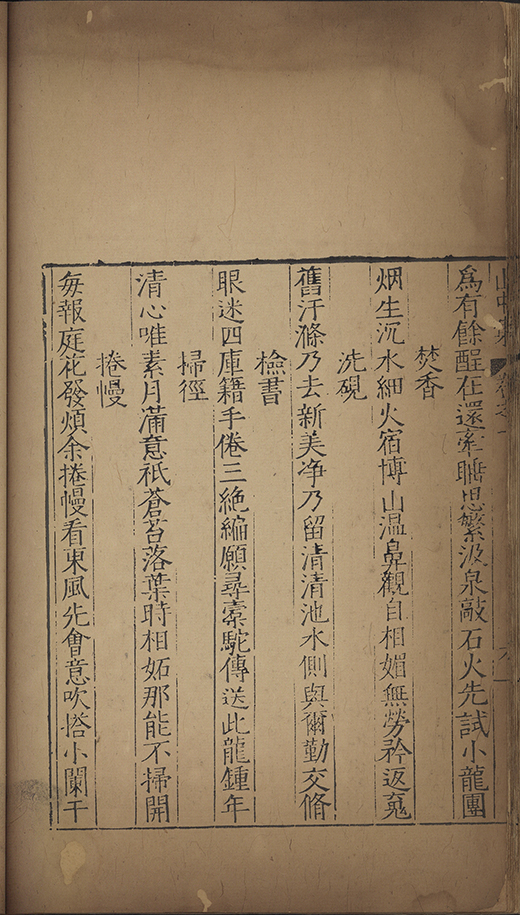 爲有餘酲在還牽睡思繁汲泉敲石火先試小龍團
焚香
烟生沉水細火宿博山温鼻觀自相媚無勞矜返䰟
洗硯
舊汙滌乃去新美净乃留清清池水側與爾勤交脩
檢書
眼迷四庫籍手倦三絶編願尋橐駝傳送此龍鍾年
掃徑
清心唯素月滿意祇蒼苔落葉時相妬那能不掃開
捲幔
每報庭花發煩余捲幔看東風先會意吹搭小闌干